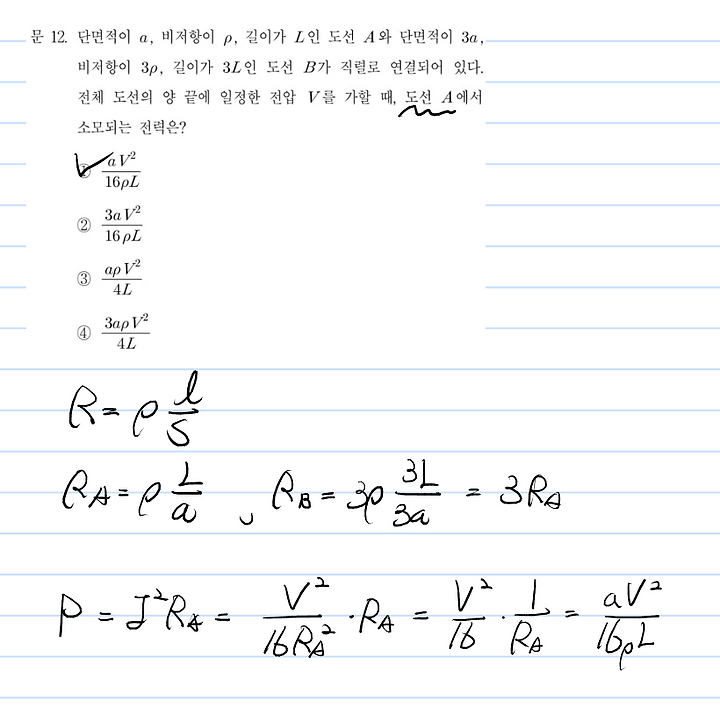 문 12. 단면적이 a, 비저항이 ρ, 길이가 L인 도선 A와 단면적이 3a,
비저항이 3ρ, 길이가 3L인 도선 B가 직렬로 연결되어 있다.
전체 도선의 양 끝에 일정한 전압 V를 가할 때, 도선 A에서
소모되는 전력은?
① aV²/16ρL
② 3aV²/16ρL
③ aρV²/4L
④ 3aρV²/4L
R = ρ l/S
R_A = ρ L/a , R_B = 3ρ 3L/3a = 3R_A
P = I²R_A = V²/16R_A² · R_A = V²/16 · 1/R_A = aV²/16ρL